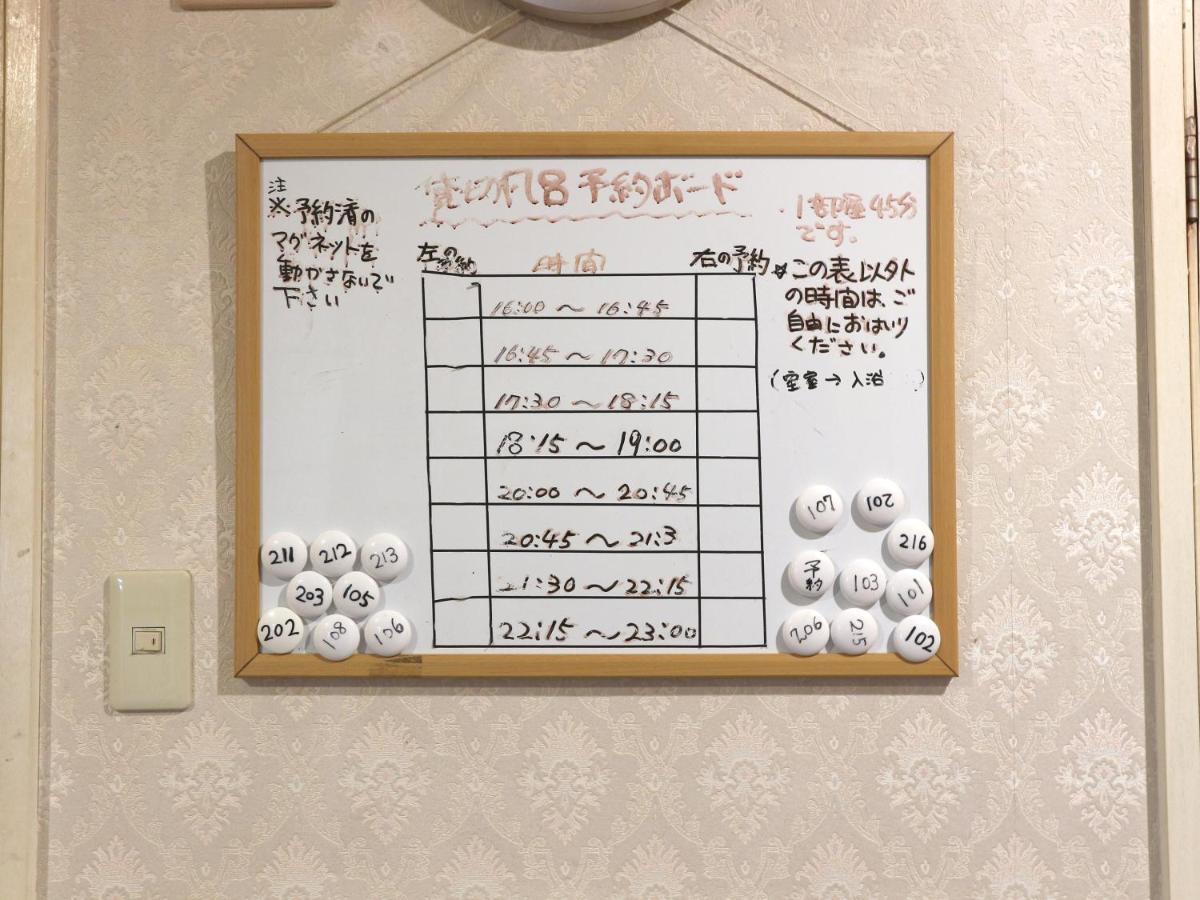 貸切風呂予約ボード
注
※予約済の
マグネットを
動かさないで
下さい
1部屋45分
です。
左の予約
時間
右の予約
※この表以外
の時間は、ご
自由におはいり
ください。
(空室→入浴 )
16:00 ～ 16:45
16:45 ～ 17:30
17:30 ～ 18:15
18:15 ～ 19:00
20:00 ～ 20:45
20:45 ～ 21:3
21:30 ～ 22:15
22:15 ～ 23:00
211 212 213
203 105
202 108 106
107 102
216
予約 103 101
206 215 102